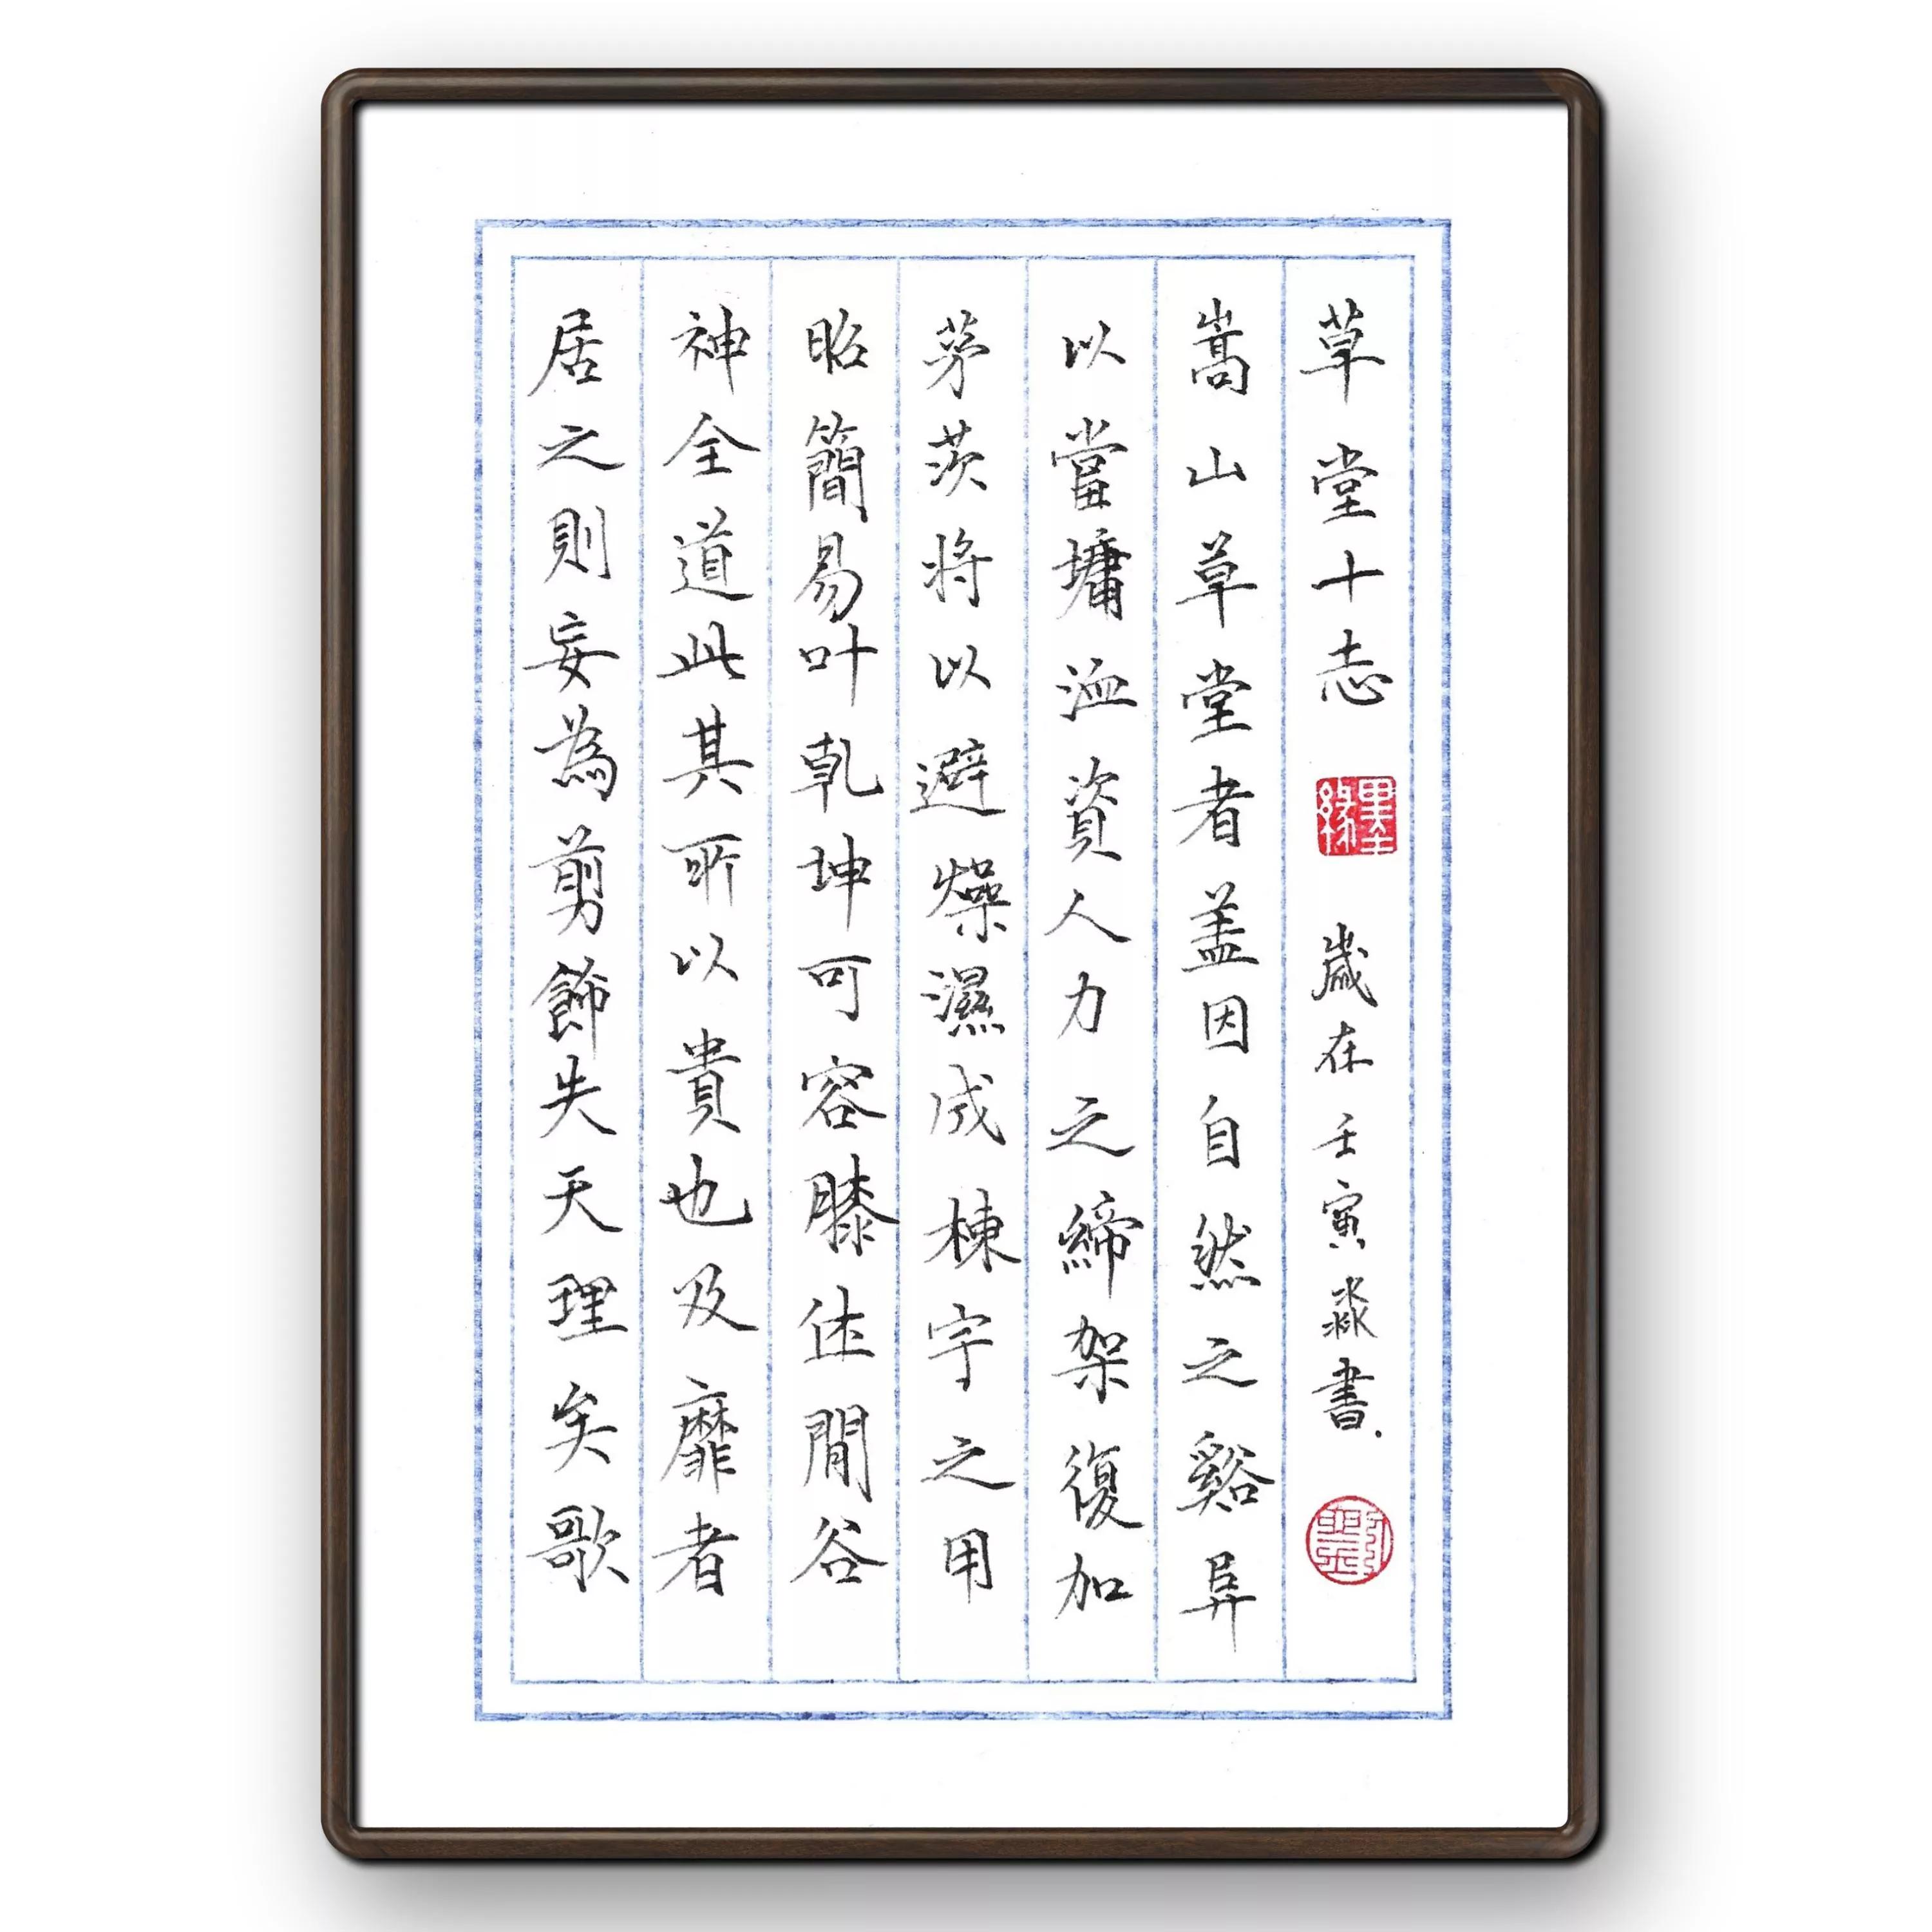 草堂十志 墨緣 歲在壬寅淼書.
嵩山草堂者盖因自然之谿阜
以當墉洫資人力之締架復加
茅茨将以避燥濕成棟宇之用
昭簡易叶乾坤可容膝休閒谷
神全道此其所以貴也及靡者
居之則妄為剪飾失天理矣歌